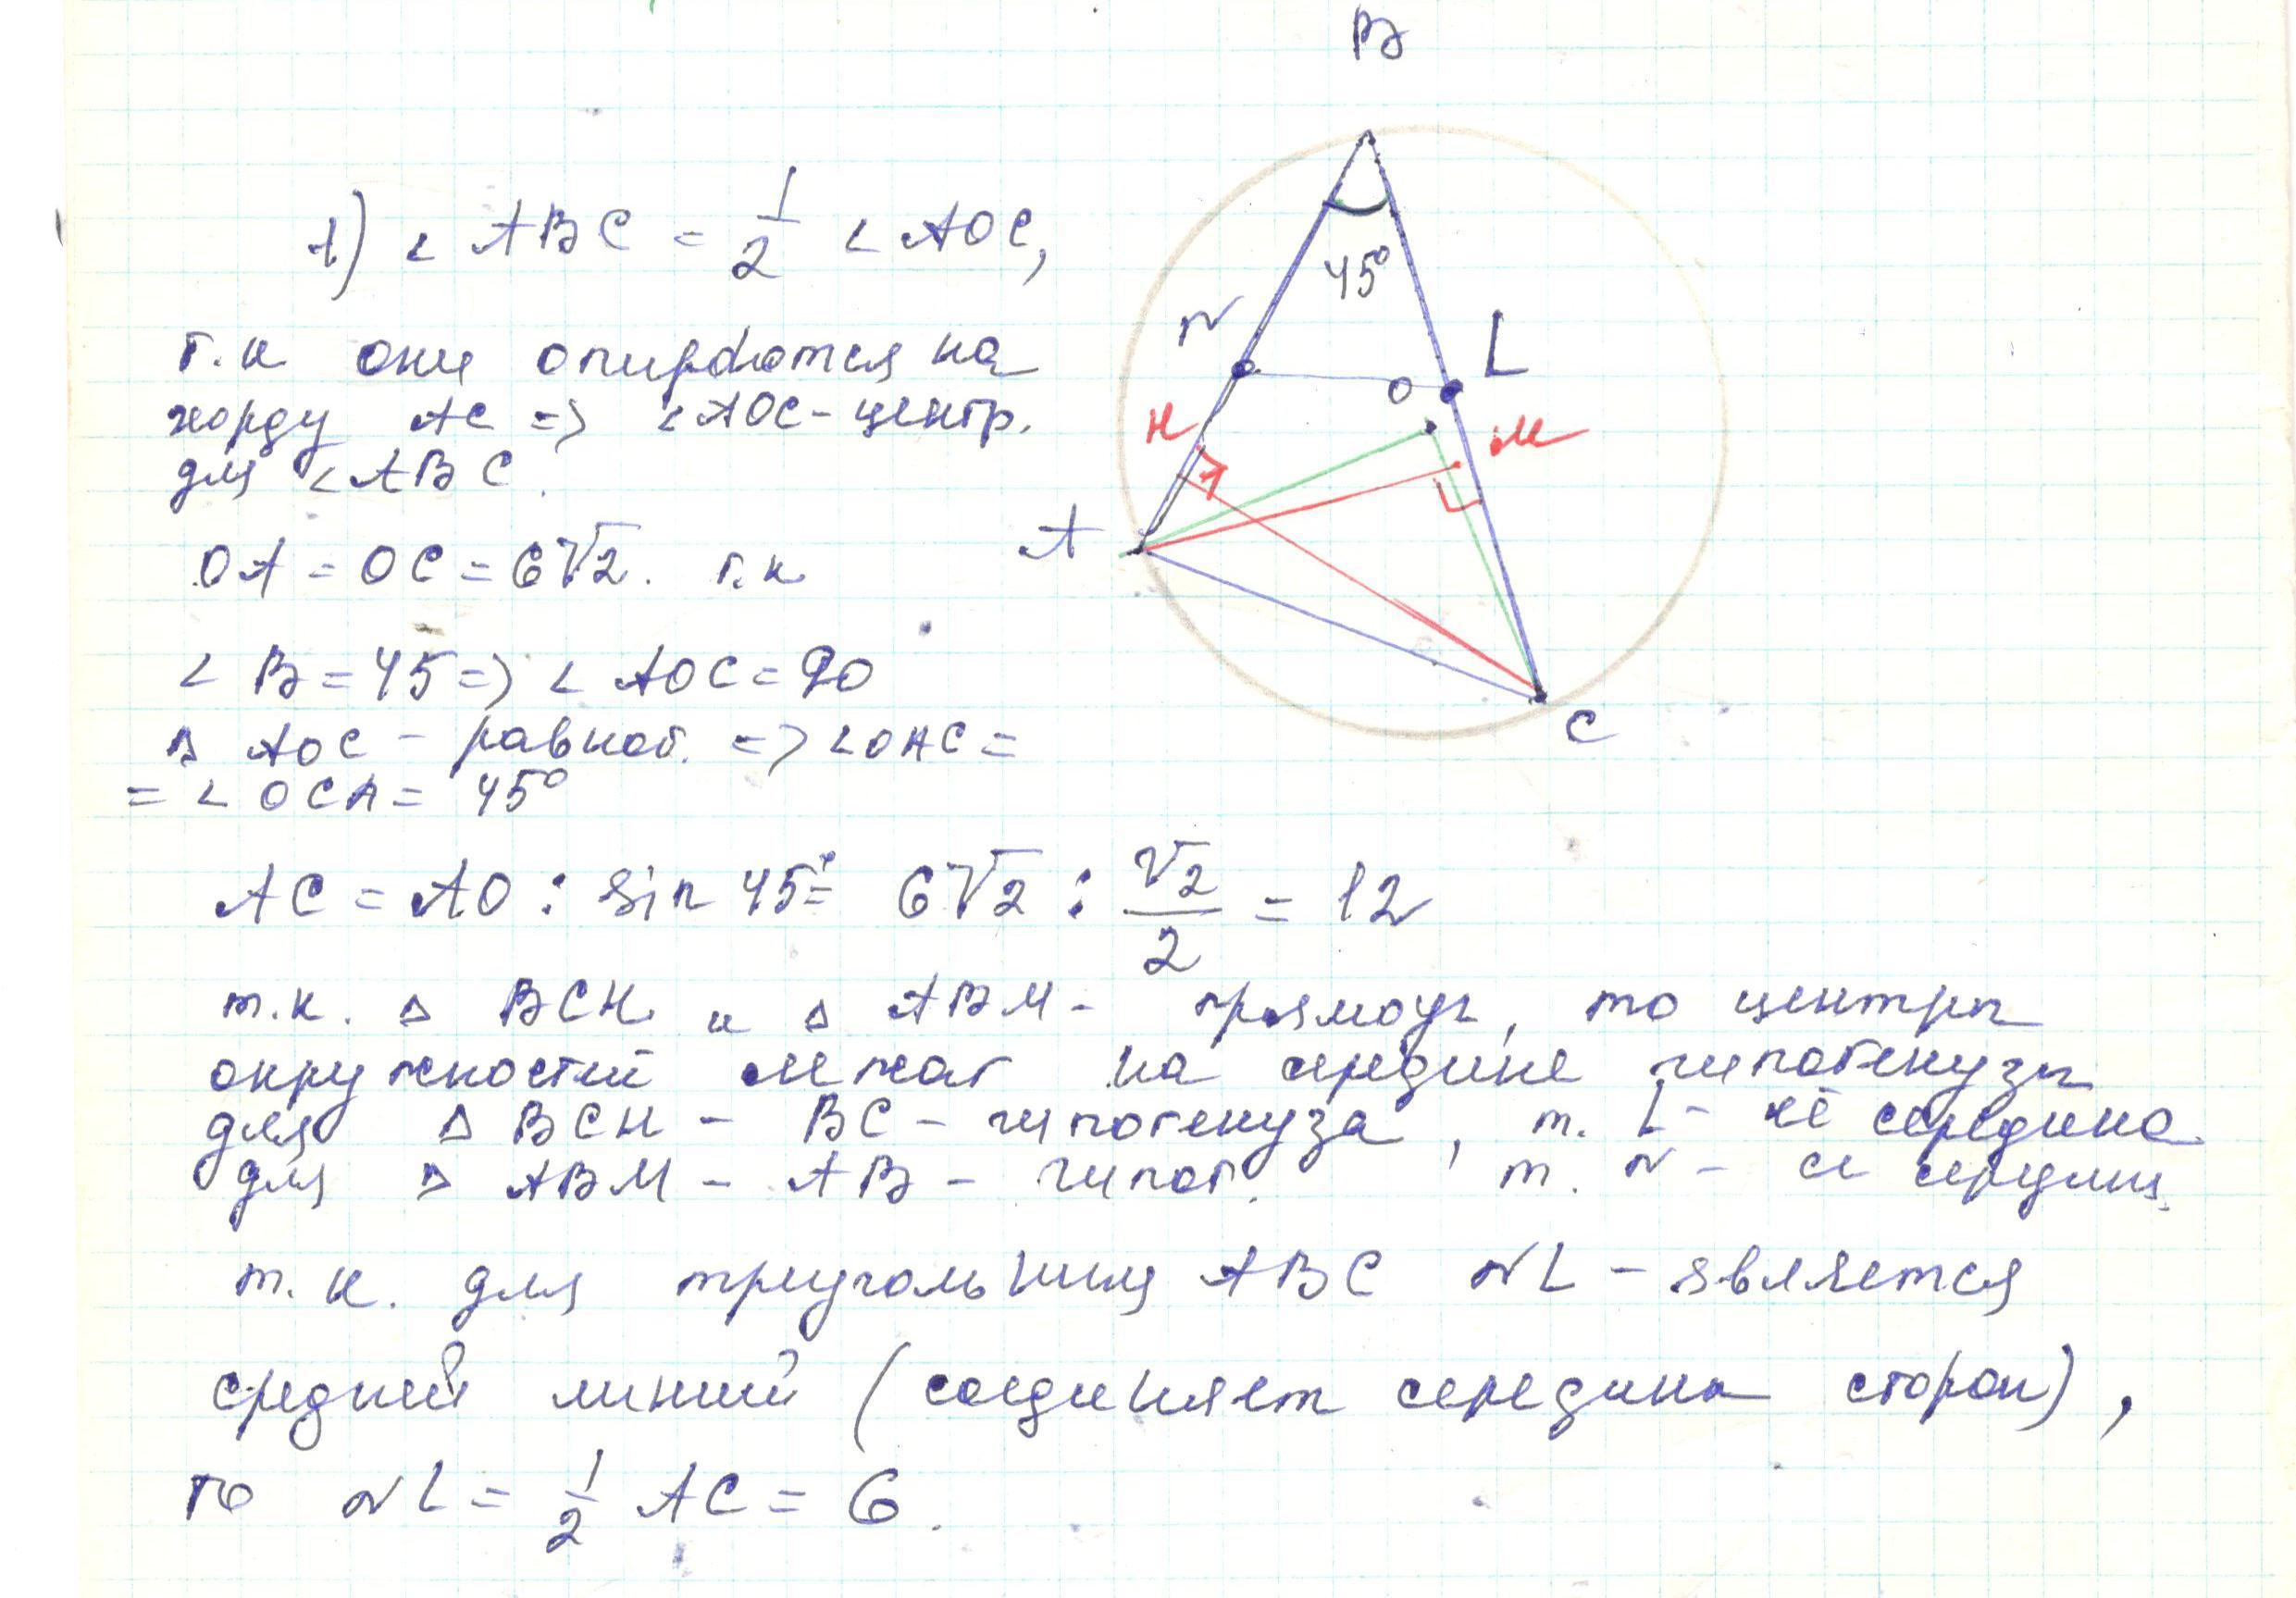 B
1) ∠ ABC = 1/2 ∠ AOC,
45°
N
L
т.к они опираются на
O
хорду AC => ∠AOC - центр.
H
M
для ∠ABC.
A
OA = OC = 6√2. т.к
∠ B = 45 => ∠ AOC = 90
C
Δ AOC - равноб. => ∠OAC =
= ∠ OCA = 45°
AC = AO : sin 45° = 6√2 : √2/2 = 12
т.к. Δ BCH и Δ ABM - прямоуг, то центры
окружностей лежат на середине гипотенузы
для Δ BCH - BC - гипотенуза, т. L - её середина
для Δ ABM - AB - гипот. т. N - её середина
т.к. для треугольника ABC NL - является
средней линией (соединяет середины сторон),
то NL = 1/2 AC = 6.